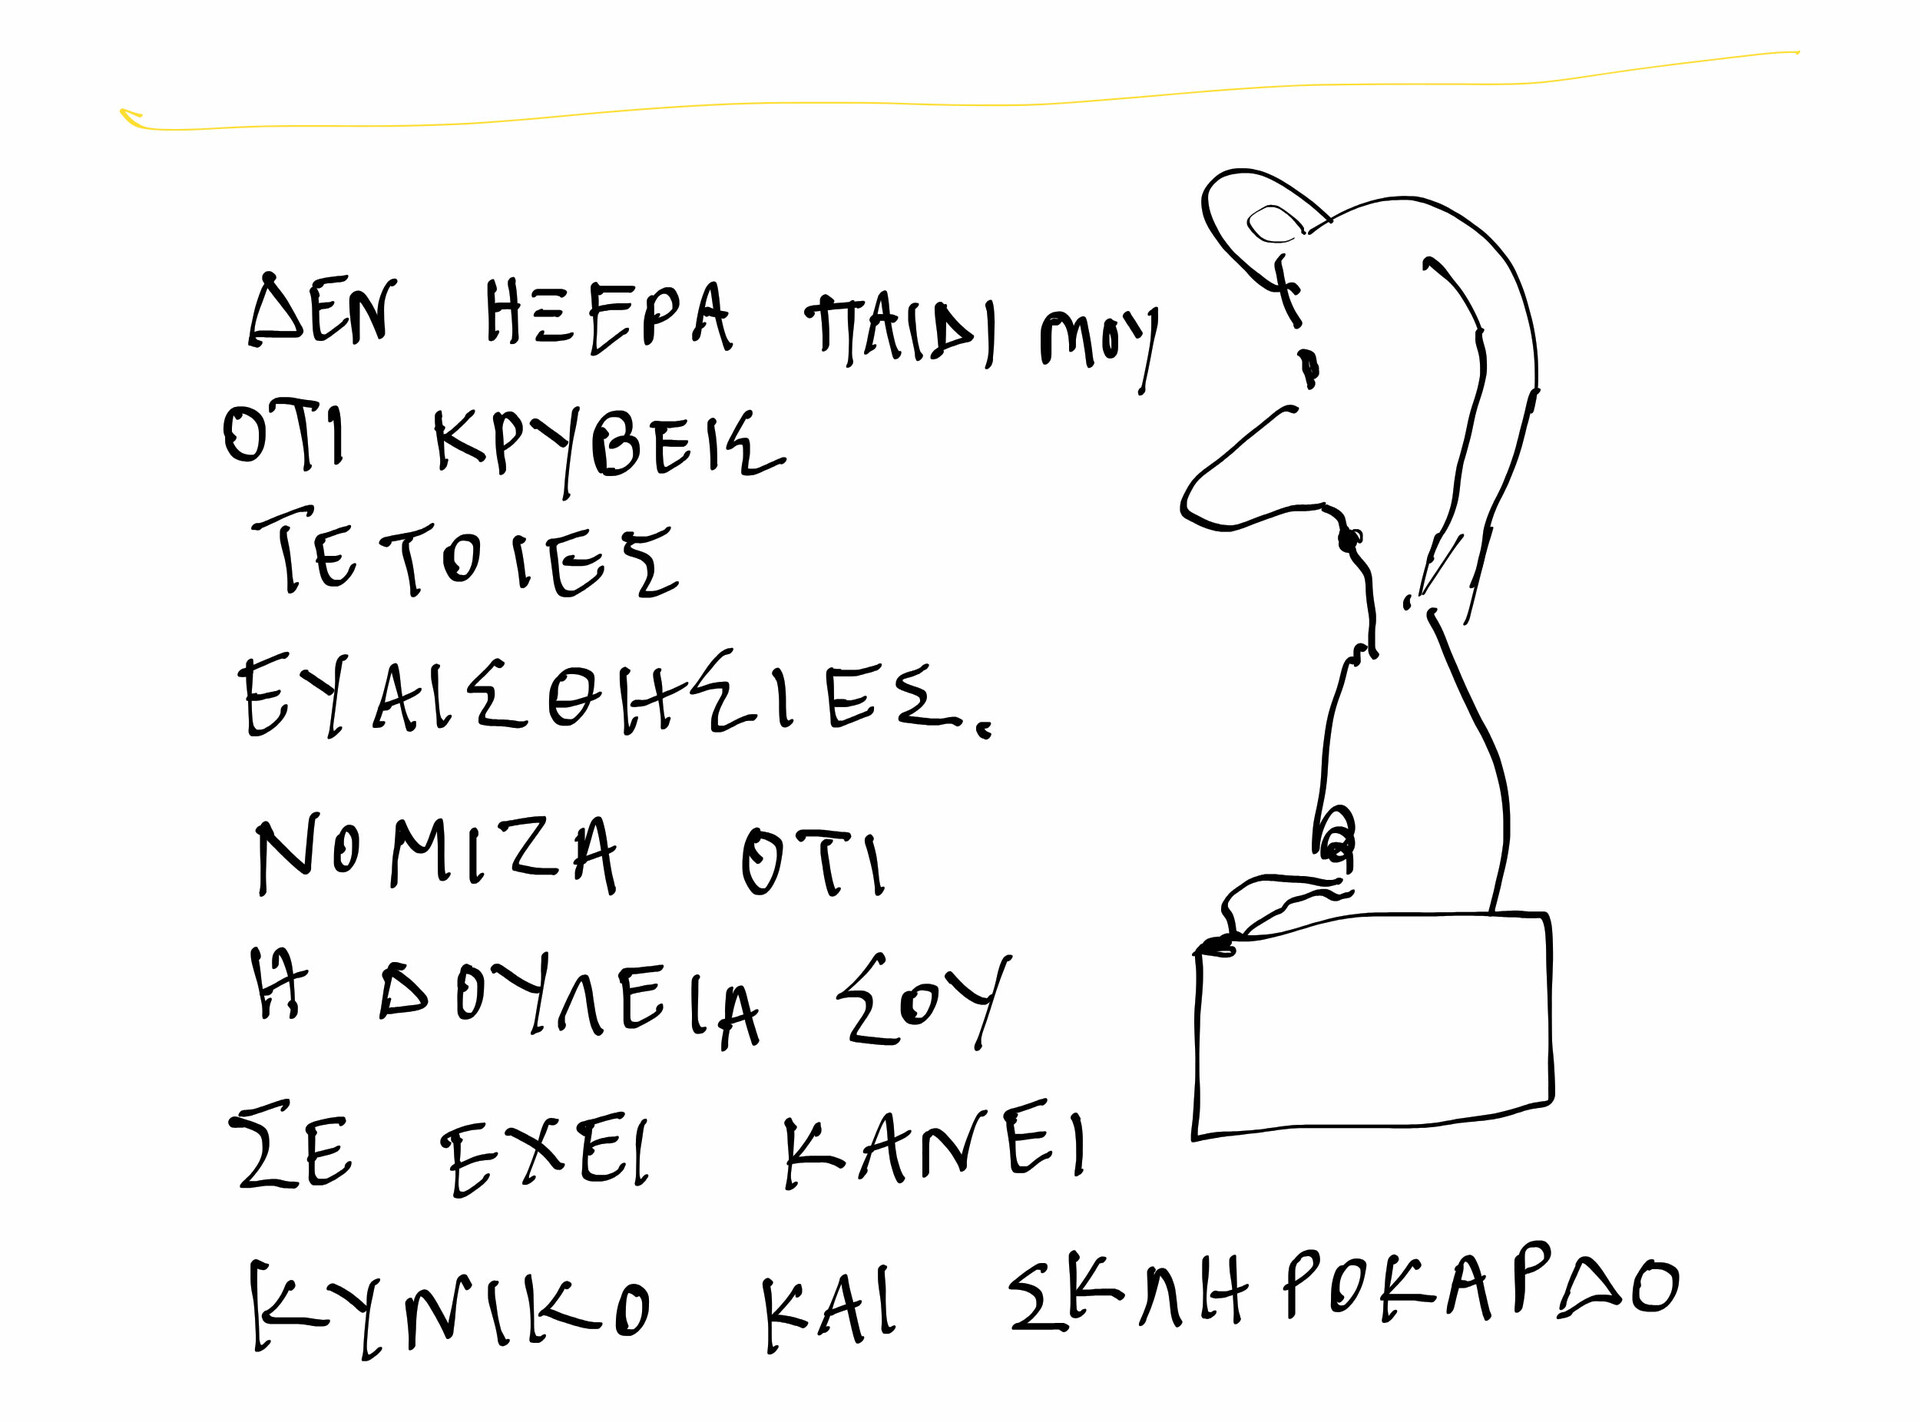 ΔΕΝ ΗΞΕΡΑ ΠΑΙΔΙ ΜΟΥ
ΟΤΙ ΚΡΥΒΕΙΣ
ΤΕΤΟΙΕΣ
ΕΥΑΙΣΘΗΣΙΕΣ.
ΝΟΜΙΖΑ ΟΤΙ
Η ΔΟΥΛΕΙΑ ΣΟΥ
ΣΕ ΕΧΕΙ ΚΑΝΕΙ
ΚΥΝΙΚΟ ΚΑΙ ΣΚΛΗΡΟΚΑΡΔΟ